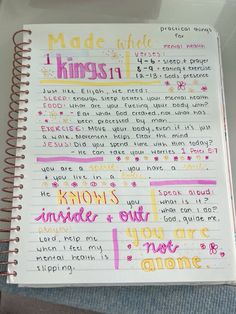 practical things
for
mental health
Made whole
1 kings 19
verses:
4-6 - sleep + prayer
8-9 - eating + exercise
12-13 - God's presence
Just like Elijah, we need:
SLEEP: enough sleep betters your mental health
FOOD: what are you fueling your body with?
↳ Eat what God created, not what has
been processed by man
EXERCISE: Move your body, even if it's just
a walk. Movement helps clear the mind.
JESUS: Did you spend time with Him today?
↳ He can take your worries
you are a soul, you have a
+ you live in a
He KNOWS you
inside + out
Speak aloud:
what is it?
what can I do?
God, guide me.
prayer:
Lord, help me
when I feel my
mental health is
slipping.
you are
not
alone.